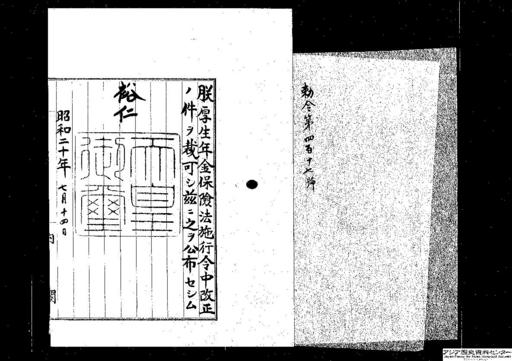 勅令第四百十七號
朕厚生年金保險法施行令中改正
ノ件ヲ裁可シ茲ニ之ヲ公布セシム
裕仁
天皇御璽
昭和二十年七月十四日
内閣
アジア歴史資料センター